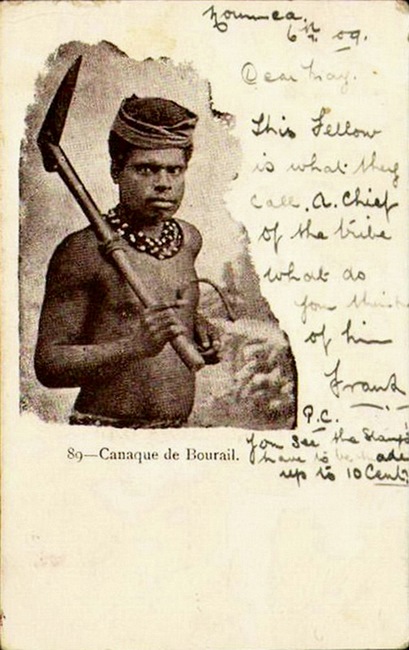 Noumea.
6th 09.
Dear May.
This Fellow
is what they
call. A. Chief
of the tribe
what do
you think
of him
Frank
P.C.
you see the Stamps
have to be made
up to 10 Cent.
89—Canaque de Bourail.